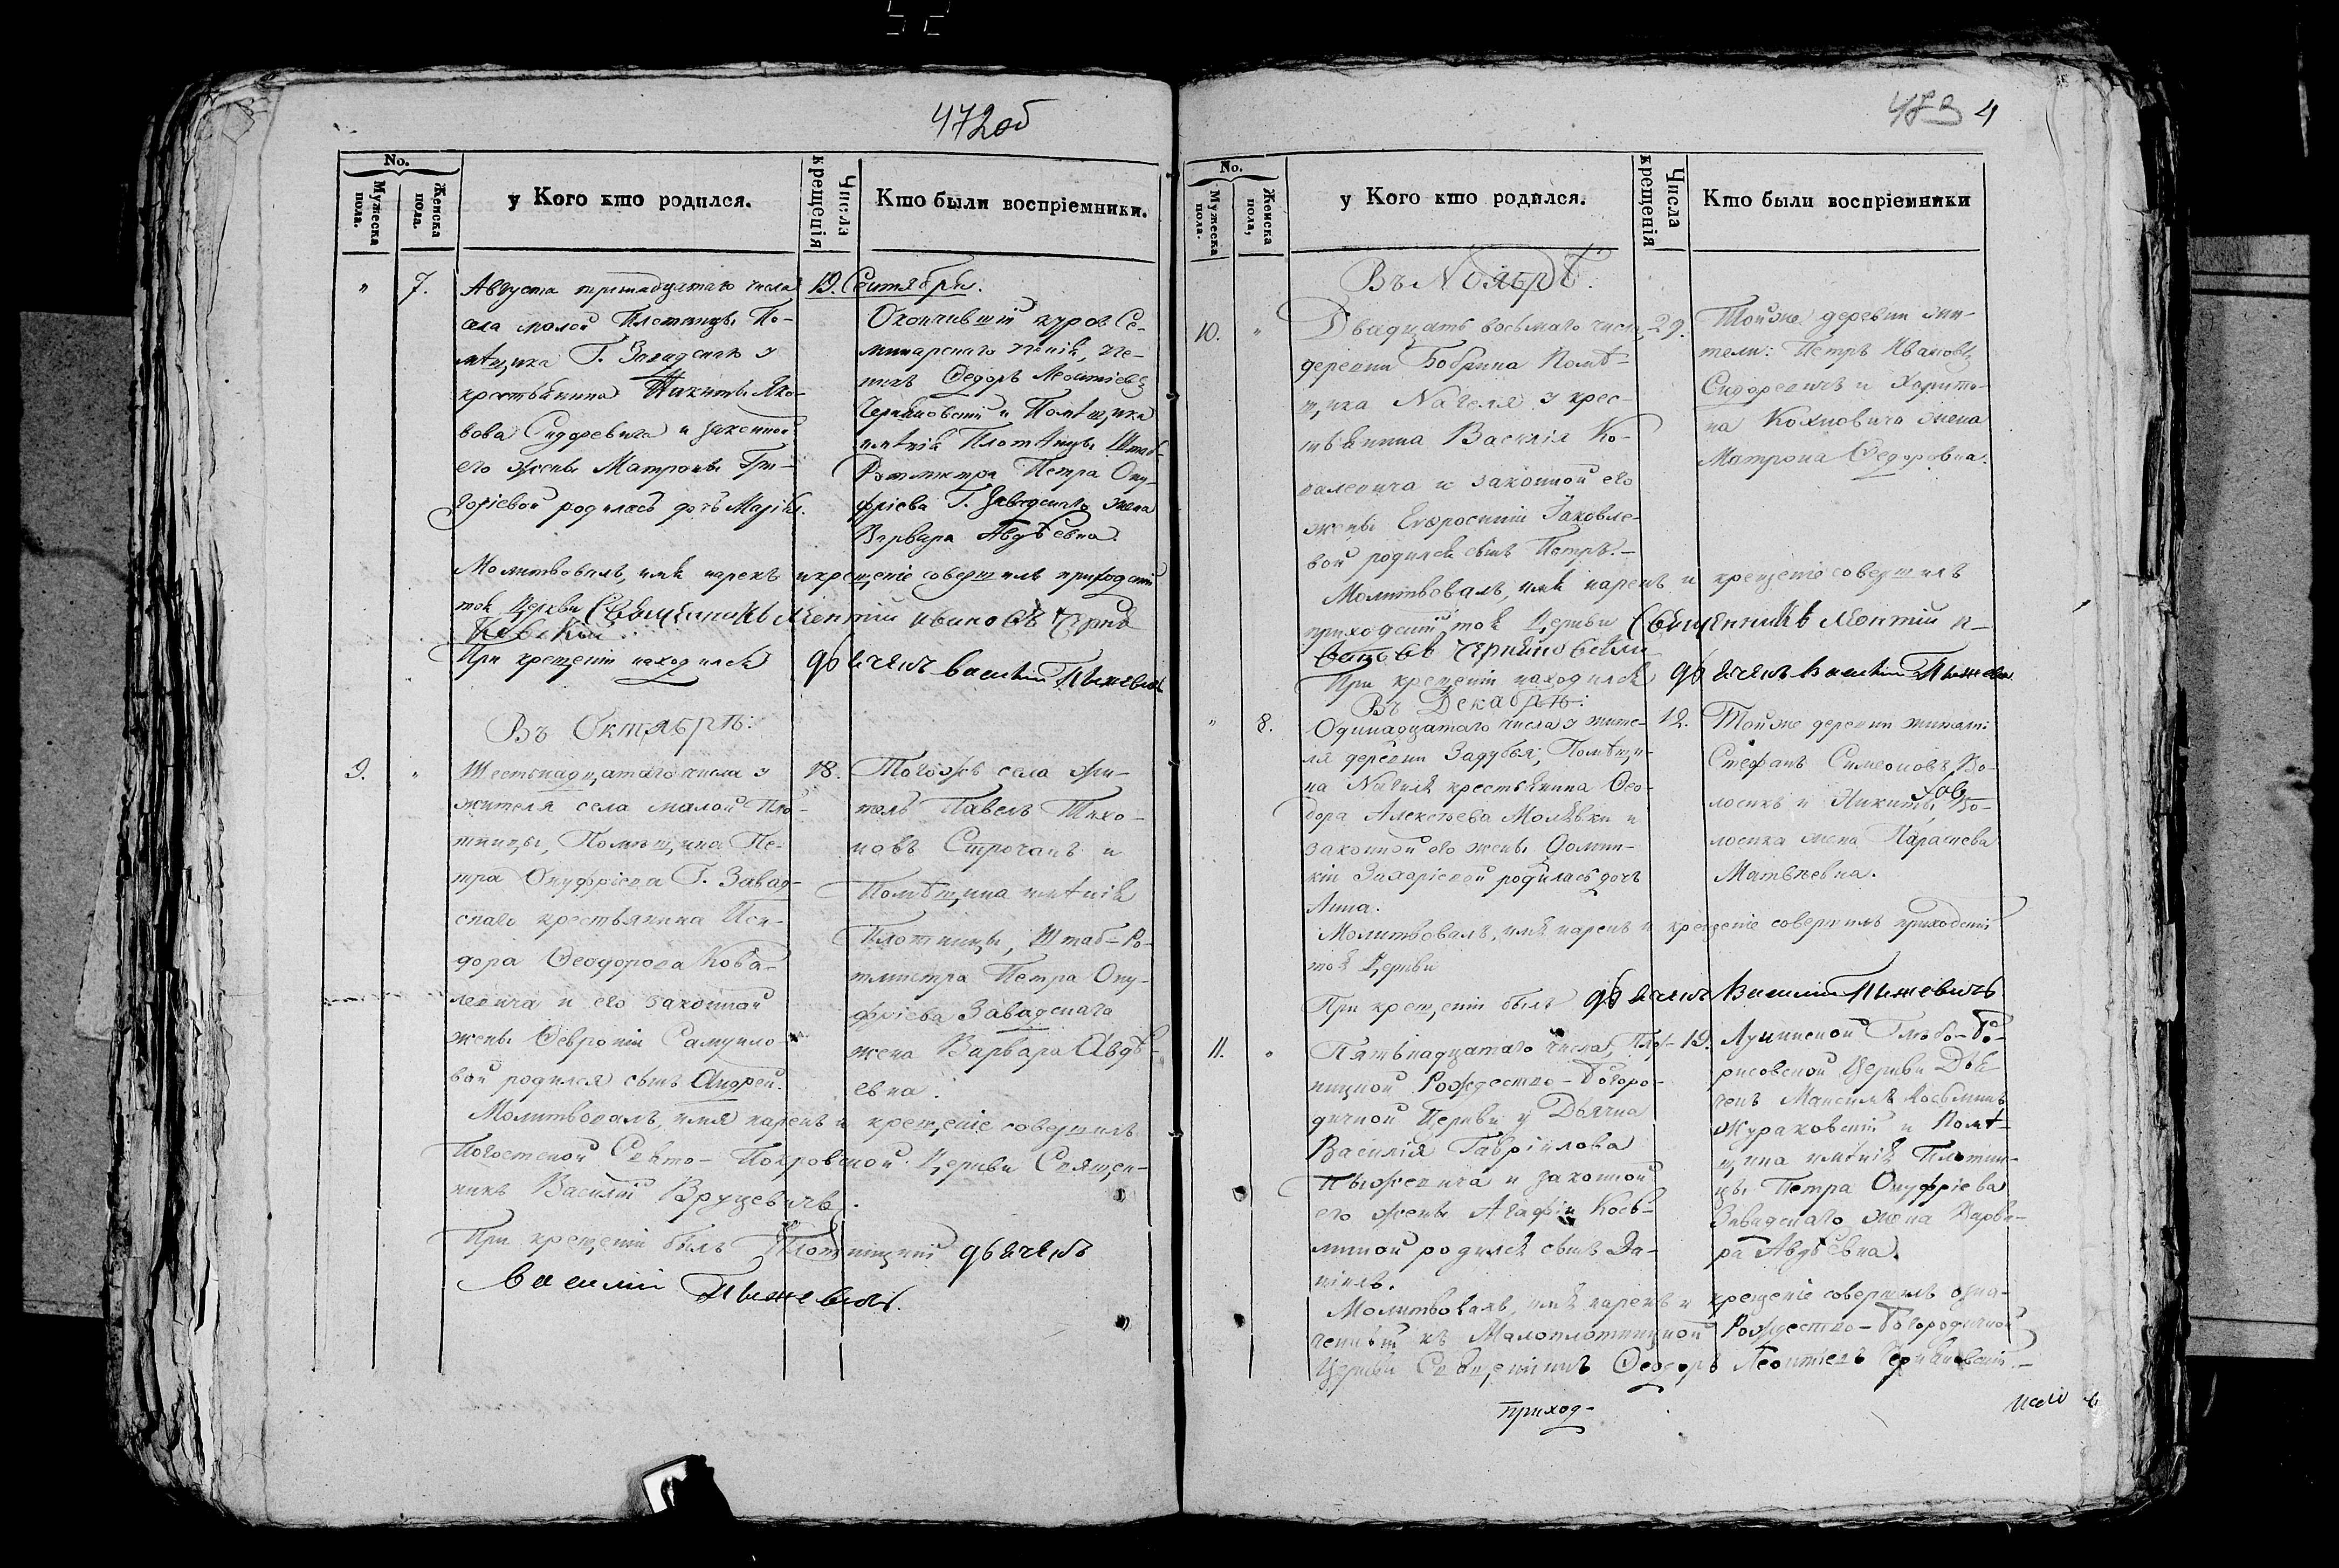 472об
No.
Мужеска пола.
Женска пола.
у Кого кто родился.
Числа крещенія
Кто были воспріемники.
" 7.
Августа тринадцатаго числа
села малой Плотницы По-
мѣщика Г. Завадскаго у
крестьянина Никиты Яко-
вова Сидоревича и законной
его жены Матроны Гри-
горіевой родилась дочь Марія.
19. Сентября.
Окончившій курсъ Се-
минарскаго ученія,
Федоръ Леонтіевъ
Черняковскій и Помѣщика
имѣнія Плотницы Штаб-
Ротмистра Петра Ону-
фріева Г. Завадскаго жена
Варвара Авдѣевна.
Молитвовалъ, имя нарекъ и крещеніе совершилъ приходскій
той Церкви Священникъ Леонтій Ивановъ Черня
ковскій
При крещеніи находился дьячекъ Василій Пыжевичъ
Въ Октябрѣ:
9. "
Шестьнадцатаго числа у
жителя села малой Пло-
тницы, Помѣщика Пе-
тра Онуфріева Г. Завад-
скаго крестьянина Иси-
дора Ѳеодорова Кова-
левича и его законной
жены Ѳевроніи Самуило-
вой родился сынъ Андрей.
18.
Тогожъ села жи-
тель Павелъ Тихо-
новъ Строчанъ и
Помѣщика имѣнія
Плотницы, Штаб-Ро-
тмистра Петра Ону-
фріева Завадскаго
жена Варвара Авдѣ-
евна.
Молитвовалъ, имя нарекъ и крещеніе совершилъ
Погостской Свято-Покровской Церкви Священ-
никъ Василій Вруцевичъ.
При крещеніи былъ Плотницкій дьячекъ
Василій Пыжевичъ.
4
No.
Мужеска пола.
Женска пола,
у Кого кто родился.
Числа крещенія
Кто были воспріемники
Въ Ноябрѣ.
10. "
Двадцать восьмаго числа,
деревни Бобрика Помѣ-
щика Нагеля у крес-
тьянина Василія Ко-
валевича и законной его
жены Евфросиніи Яковле-
вой родился сынъ Петръ.-
29.
Тойже деревни жи-
тели: Петръ Ивановъ
Сидоревичъ и Харито-
на Колновича жена
Матрона Федоровна.
Молитвовалъ, имя нарекъ и крещеніе совершилъ
приходскій той Церкви Священникъ Леонтій И-
вановъ Черняковскій
При крещеніи находился дьячекъ Василій Пыжевичъ
Въ Декабрѣ:
" 8.
Одинадцатаго числа у жите-
ля деревни Задубья, Помѣщи-
ка Нагеля крестьянина Ѳео-
дора Алексѣева Молявки и
законной его жены Домни-
кіи Захаріевой родилась дочь
Анна.
12.
Тойже деревни жители:
Стефанъ Симеоновъ Во-
лосикъ и Никиты Во-
лосика жена Параскева
Матвѣевна.
Молитвовалъ, имя нарекъ и крещеніе совершилъ приходскій
той Церкви
При крещеніи былъ дьячекъ Василій Пыжевичъ
11. "
Пятьнадцатаго числа, Плот-
ницкой Рождество-Богоро-
дичной Церкви у Дьячка
Василія Гавріилова
Пыжевича и законной
его жены Агафіи Кось-
миной родился сынъ Да-
ніилъ.
19.
Лунинской Глѣбо-Бо-
рисовской Церкви Дья-
чекъ Максимъ Косьминъ
Жураковскій и Помѣ-
щика имѣнія Плотни-
цы Петра Онуфріева
Завадскаго жена Варва-
ра Авдѣевна.
Молитвовалъ, имя нарекъ и крещеніе совершилъ озна-
ченный къ Малоплотницкой Рождество-Богородичной
Церкви Священникъ Ѳеодоръ Леонтіевъ Черняковскій.-
приход-